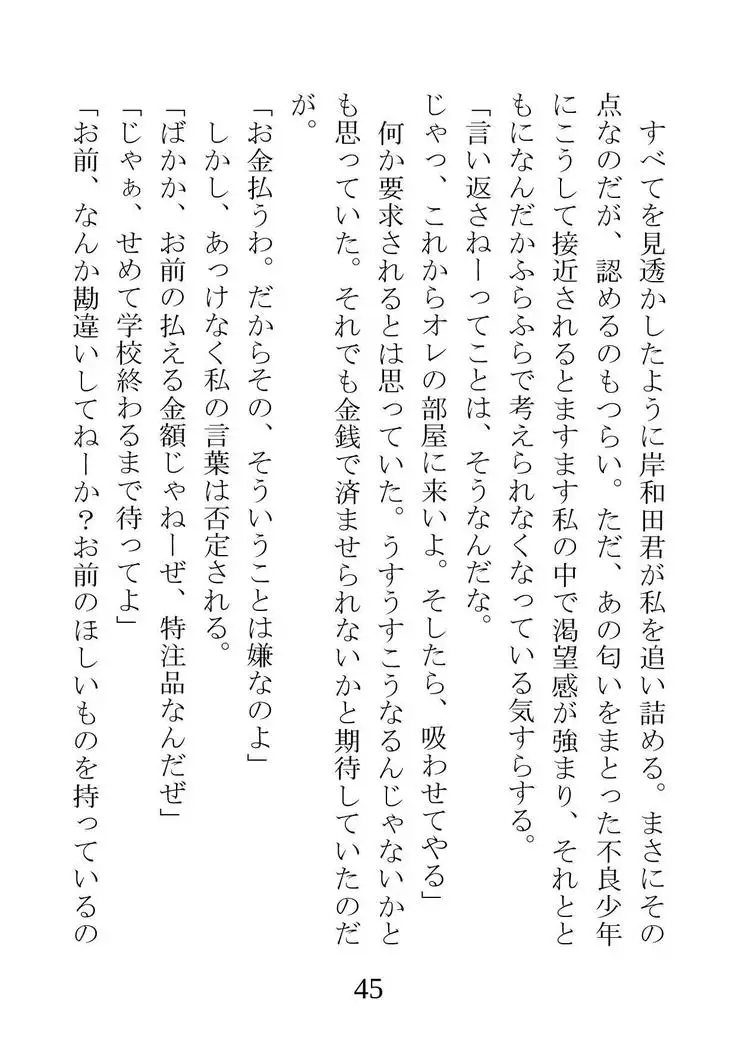 すべてを見透かしたように岸和田君が私を追い詰める。まさにその
点なのだが、認めるのもつらい。ただ、あの匂いをまとった不良少年
にこうして接近されるとますます私の中で渇望感が強まり、それとと
もになんだかふらふらで考えられなくなっている気すらする。
「言い返さねーってことは、そうなんだな。
じゃっ、これからオレの部屋に来いよ。そしたら、吸わせてやる」
何か要求されるとは思っていた。うすうすこうなるんじゃないかと
も思っていた。それでも金銭で済ませられないかと期待していたのだ
が。
「お金払うわ。だからその、そういうことは嫌なのよ」
しかし、あっけなく私の言葉は否定される。
「ばかか、お前の払える金額じゃねーぜ、特注品なんだぜ」
「じゃぁ、せめて学校終わるまで待ってよ」
「お前、なんか勘違いしてねーか？お前のほしいものを持っているの
45